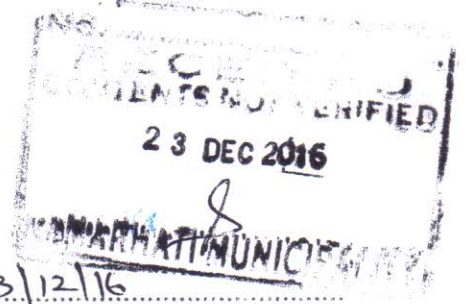 RECEIVED
CONTENTS NOT VERIFIED
23 DEC 2016
KAMARHATI MUNICIPALITY
3/12/16